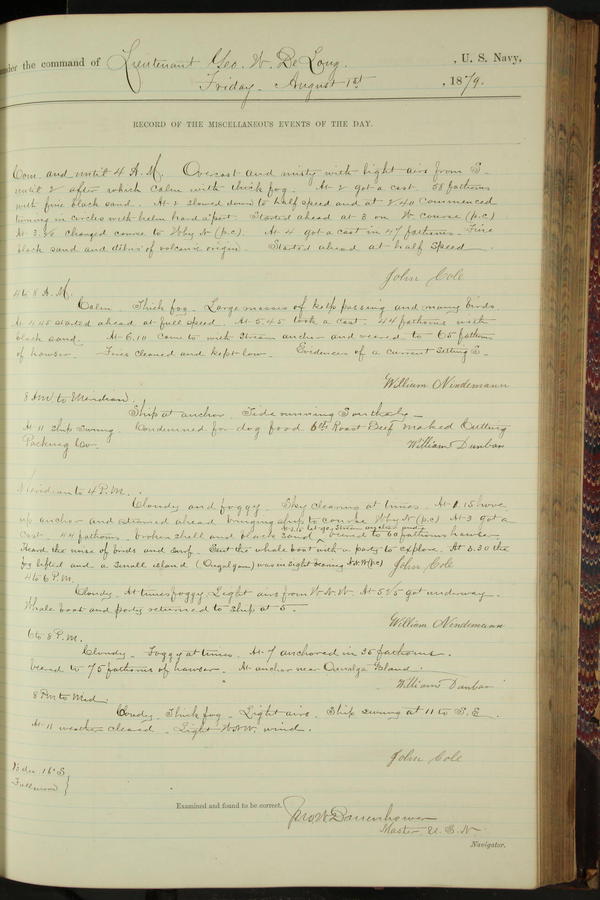 under the command of Lieutenant Geo. W. De Long. , U. S. Navy,
Friday - August 1st , 1879.
RECORD OF THE MISCELLANEOUS EVENTS OF THE DAY.
Com. and until 4 A.M. Overcast and misty with light airs from S.
until 2 after which calm with thick fog. At 2 got a cast 58 fathoms
with fine black sand. At 2 slowed down to half speed and at 2.40 commenced
turning in circles with helm hard a'port. Started ahead at 3 on W. course (p.c)
At 3.35 changed course to W by N (p.c). At 4 got a cast in 47 fathoms. Fine
black sand and debris of volcanic origin. Started ahead at half speed.
John Cole
4 to 8 A.M.
Calm. Thick fog. Large masses of kelp passing and many birds.
At 4.45 started ahead at full speed. At 5.45 took a cast. 44 fathoms with
black sand. At 6.10 came to with stream anchor and veered to 65 fathoms
of hawser. Fires cleaned and kept low. Evidences of a current setting S.
William Nindemann
8 AM to Meridian.
Ship at anchor. Tide running Southerly.
At 11 ship swung. Condemned for dog food 6 lbs Roast Beef marked Cutting
Packing Co. William Dunbar
Meridian to 4 P.M.:
Cloudy and foggy. Sky clearing at times. At 1.15 hove
up anchor and steamed ahead bringing ship to course W by N (p.c) At 3 got a
At 3.15 let go stream anchor and
cast. 44 fathoms. broken shell and black sand veered to 60 fathoms hawser
Heard the noise of birds and surf. Sent the whale boat with a party to explore. At 3.30 the
fog lifted and a small island was in sight bearing (p.c) John Cole
4 to 6 P.M.
Cloudy. At times foggy. Light airs from W.N.W. At 5.35 got underway.
Whale boat and party returned to ship at 5.
William Nindemann
6 to 8 P.M.
Cloudy. Foggy at times. At 7 anchored in 35 fathoms.
veered to 75 fathoms of hawser. At anchor near Island.
William Dunbar
8 PM to Mid.
Cloudy. Thick fog. Light airs. Ship swung at 11 to S.E.
At 11 weather cleared. Light W.N.W. wind.
John Cole
Examined and found to be correct. Jno W Danenhower
Master, U.S.N
Navigator.